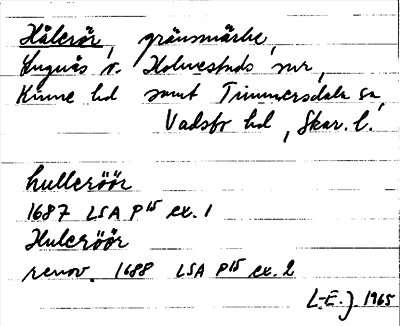 Hålerör, gränsmärke,
Lugnås o. Holmestads snr,
Kinne hd samt Timmersdala sn,
Vadsbo hd, Skar. l.
hulleröör
1687 LSA P15 ex. 1
Huleröör
renov. 1688 LSA P15 ex. 2
L-E. J 1965